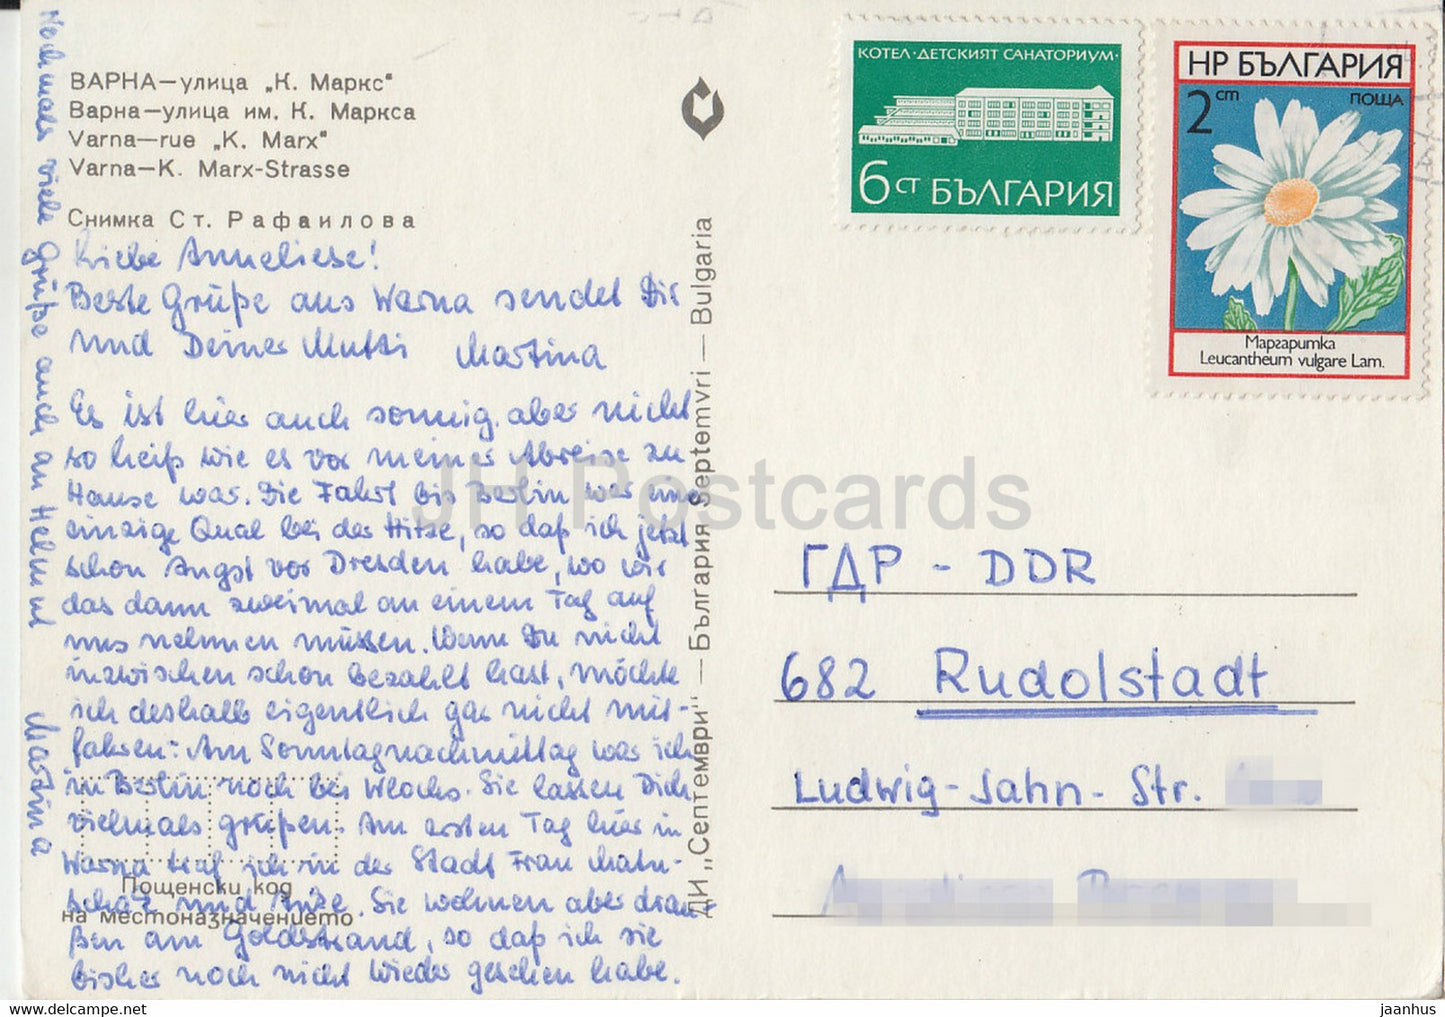 ВАРНА—улица „К. Маркс"
Варна—улица им. К. Маркса
Varna—rue „K. Marx"
Varna—K. Marx-Strasse
Снимка Ст. Рафаилова
Liebe Anneliese!
Beste Grüße aus Warna sendet Dir
und Deiner Mutti Martina
Es ist hier auch sonnig, aber nicht
so heiß wie es vor meiner Abreise zu
Hause war. Die Fahrt bis Berlin war eine
einzige Qual bei der Hitze, so daß ich jetzt
schon Angst vor Dresden habe, wo wir
das dann zweimal an einem Tag auf
uns nehmen müssen. Wenn Du nicht
inzwischen schon bezahlt hast, möchte
ich deshalb eigentlich gar nicht mit-
fahren. Am Sonntagnachmittag war ich
in Berlin noch bei Wlochs. Sie lassen Dich
vielmals grüßen. Am ersten Tag hier in
Warna traf ich in der Stadt Frau
und Anke. Sie wohnen aber drau-
ßen am Goldstrand, so daß ich sie
bisher noch nicht wieder gesehen habe.
Nochmals viele Grüße auch an Helmut Martina
Пощенски код
на местоназначението
ДИ „Септември" — България Septemvri — Bulgaria
КОТЕЛ · ДЕТСКИЯТ САНАТОРИУМ ·
6 СТ БЪЛГАРИЯ
НР БЪЛГАРИЯ
2 ст ПОЩА
Маргаритка
Leucantheum vulgare Lam.
ГДР - DDR
682 Rudolstadt
Ludwig-Jahn-Str.
JH Postcards
www.delcampe.net
jaanhus